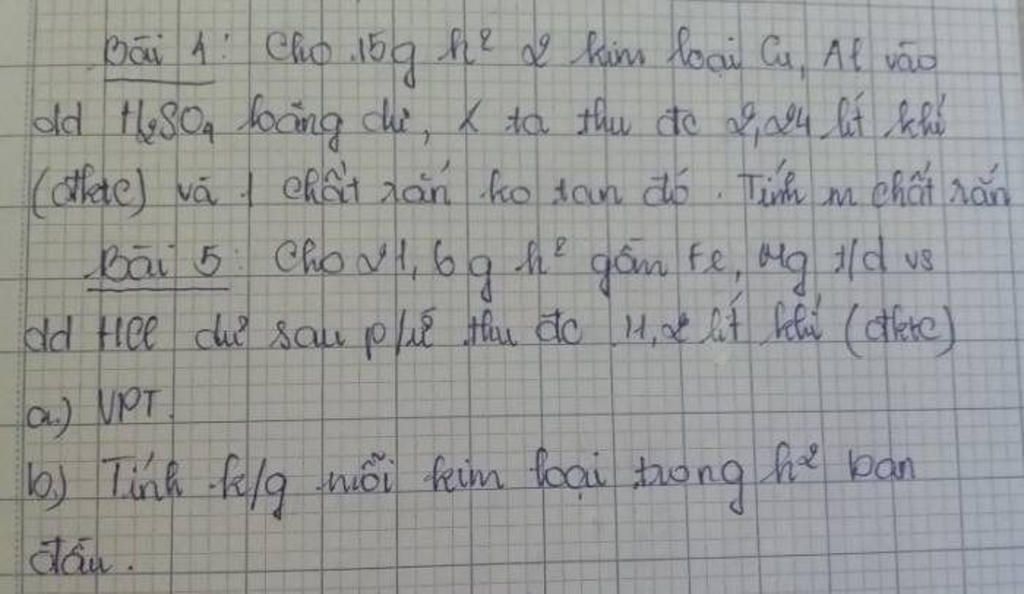 Bài 1: Cho 15g h² 2 kim loại Cu, Al vào
dd H₂SO₄ loãng dư, ta thu đc 2,24 lít khí
(đktc) và 1 chất rắn ko tan đó. Tính m chất rắn
Bài 5: Cho 21,6g h² gồm Fe, Mg t/d vs
dd HCl dư sau p/ứ thu đc 11,2 lít khí (đktc)
a.) VPT.
b.) Tính k/g mỗi kim loại trong h² ban
đầu.